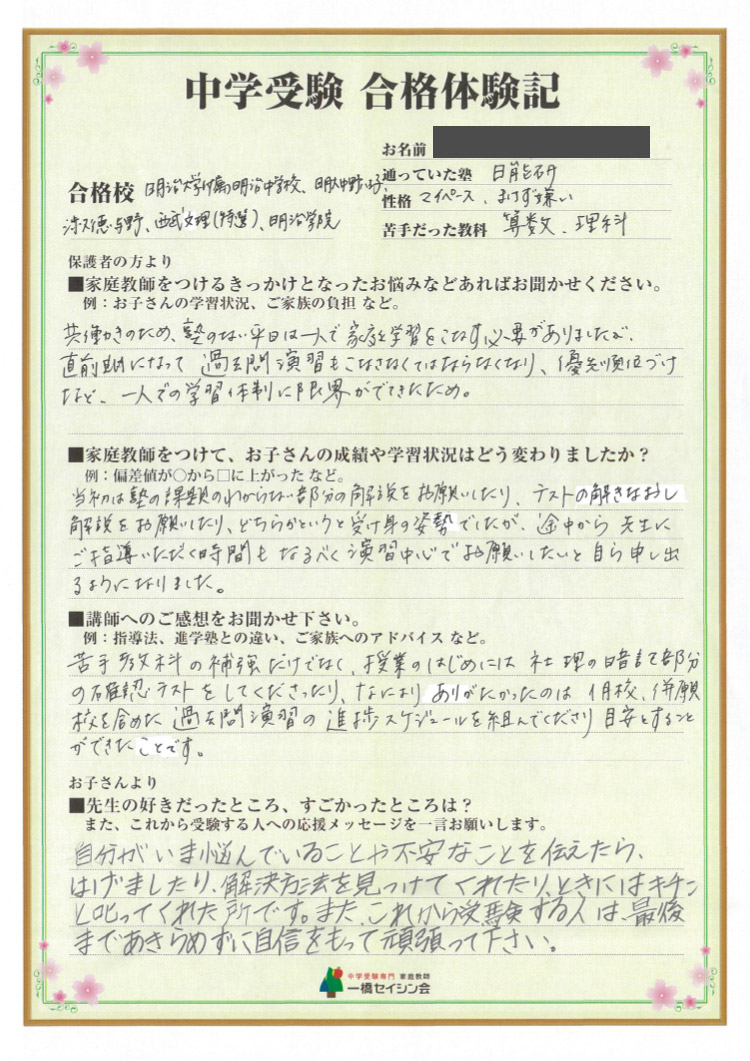 中学受験 合格体験記
お名前
通っていた塾 日能研
性格 マイペース、まけず嫌い
苦手だった教科 算数、理科
合格校 明治大学付属明治中学校、明大中野八王子、
渋谷教育、西武文理(特選)、明治学院
保護者の方より
■家庭教師をつけるきっかけとなったお悩みなどあればお聞かせください。
例：お子さんの学習状況、ご家族の負担 など。
共働きのため、塾のない平日は一人で家庭学習をこなす必要がありましたが、
直前期になって過去問演習もこなさなくてはならなくなり、優先順位づけ
など、一人での学習体制に限界がでてきたため。
■家庭教師をつけて、お子さんの成績や学習状況はどう変わりましたか？
例：偏差値が○から□に上がった など。
当初は塾の課題のわからない部分の解説をお願いしたり、テストの解きなおし
解説をお願いしたり、どちらかというと受け身の姿勢でしたが、途中から先生に
ご指導いただく時間もなるべく演習中心でお願いしたいと自ら申し出
るようになりました。
■講師へのご感想をお聞かせ下さい。
例：指導法、進学塾との違い、ご家族へのアドバイス など。
苦手教科の補強だけでなく、授業のはじめには社理の暗記部分
の確認テストをしてくださったり、なにより ありがたかったのは 1月校、併願
校を含めた過去問演習の進捗スケジュールを組んでくださり目安とすること
ができたことです。
お子さんより
■先生の好きだったところ、すごかったところは？
また、これから受験する人への応援メッセージを一言お願いします。
自分がいま悩んでいることや不安なことを伝えたら、
はげましたり、解決方法を見つけてくれたり、ときにはキチン
と叱ってくれた所です。また、これから受験する人は、最後
まであきらめずに自信をもって頑張って下さい。
中学受験専門 家庭教師
一橋セイシン会